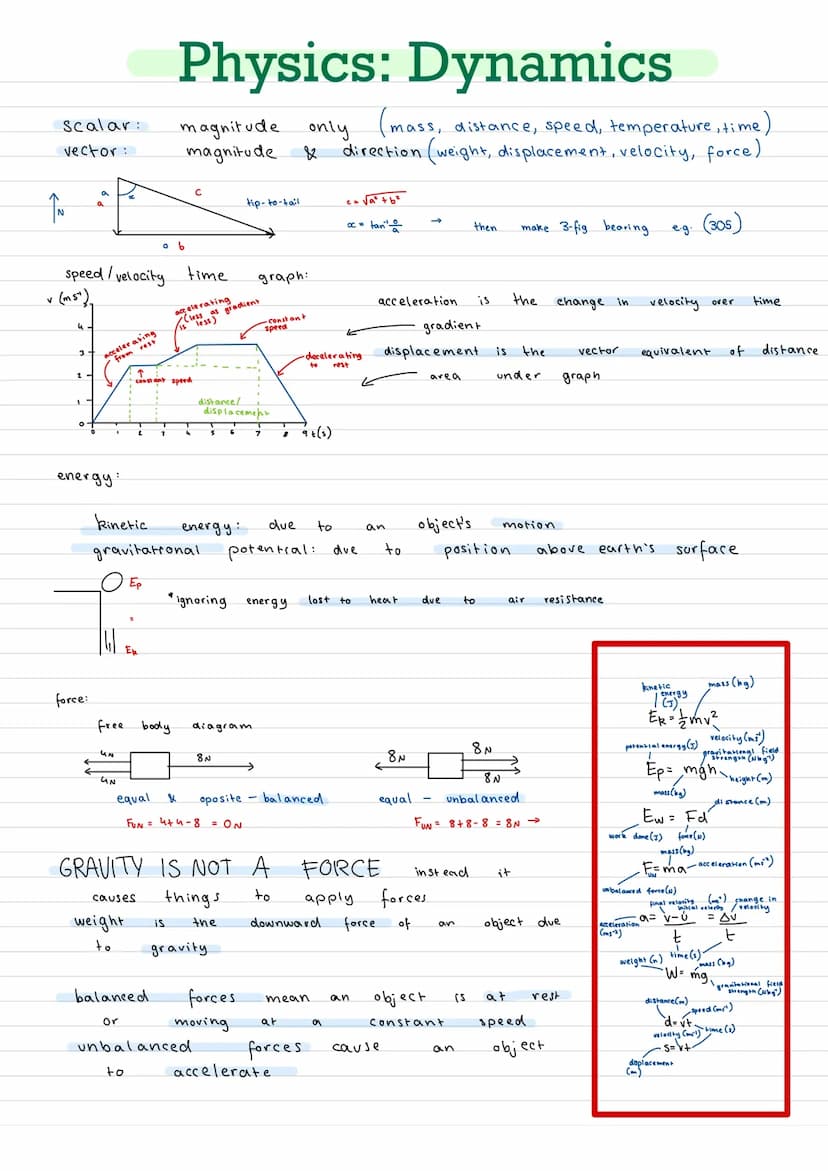 Physics: Dynamics
scalar: magnitude only (mass, distance, speed, temperature, time)
vector: magnitude & direction (weight, displacement, velocity, force)
N
a
a
x
c
o b
tip-to-tail
c = √a² + b²
x = tan⁻¹ o/a → then make 3-fig bearing eg. (305)
speed/velocity time graph:
v (ms⁻¹)
4
3
2
1
0
0 1 2 3 4 5 6 7 8 9 t(s)
accelerating from rest
constant speed
accelerating (less as gradient is less)
constant speed
decelerating to rest
distance/
displacement
acceleration is the change in velocity over time
gradient
displacement is the vector equivalent of distance
area under graph
energy:
kinetic energy: due to an object's motion
gravitational potential: due to position above earth's surface
Ep
=
Ek
*ignoring energy lost to heat due to air resistance
force:
free body diagram
4N
4N
8N
equal & oposite - balanced
FUN = 4+4-8 = 0N
8N
8N
8N
equal - unbalanced
FUN = 8+8-8 = 8N →
GRAVITY IS NOT A FORCE instead it
causes things to apply forces
weight is the downward force of an object due
to gravity
balanced forces mean an object is at rest
or moving at a constant speed
unbalanced forces cause an object
to accelerate
kinetic energy (J)
mass (kg)
Ek = ½mv²
velocity (ms⁻¹)
potential energy (J)
gravitational field strength (Nkg⁻¹)
Ep = mgh
height (m)
mass (kg)
distance (m)
Ew = Fd
work done (J)
force (N)
mass (kg)
F = ma
UN
acceleration (ms⁻²)
unbalanced force (N)
final velocity (ms⁻¹)
initial velocity
change in velocity
acceleration (ms⁻²)
a = v-u/t = Δv/t
time (s)
weight (n)
mass (kg)
W = mg
gravitational field strength (Nkg⁻¹)
distance (m)
speed (ms⁻¹)
d = vt
velocity (ms⁻¹)
time (s)
s = vt
displacement (m)